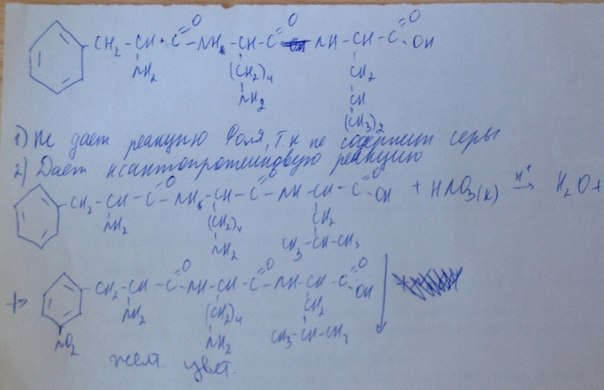 CH₂ – CH – C – NH – CH – C – NH – CH – C – OH
O O O
NH₂ (CH₂)₄ CH₂
NH₂ CH
(CH₃)₂
1) Не дает реакцию Фоля, т.к не содержит серы
2) Дает ксантопротеиновую реакцию
CH₂ – CH – C – NH – CH – C – NH – CH – C – OH + HNO₃(к) H⁺→ H₂O +
O O O O
NH₂ (CH₂)₄ CH₂
NH₂ CH₃–CH–CH₃
+ CH₂ – CH – C – NH – CH – C – NH – CH – C – OH ↓
O O O
NH₂ (CH₂)₄ CH₂
NO₂ NH₂ CH₃–CH–CH₃
жел. цвет.